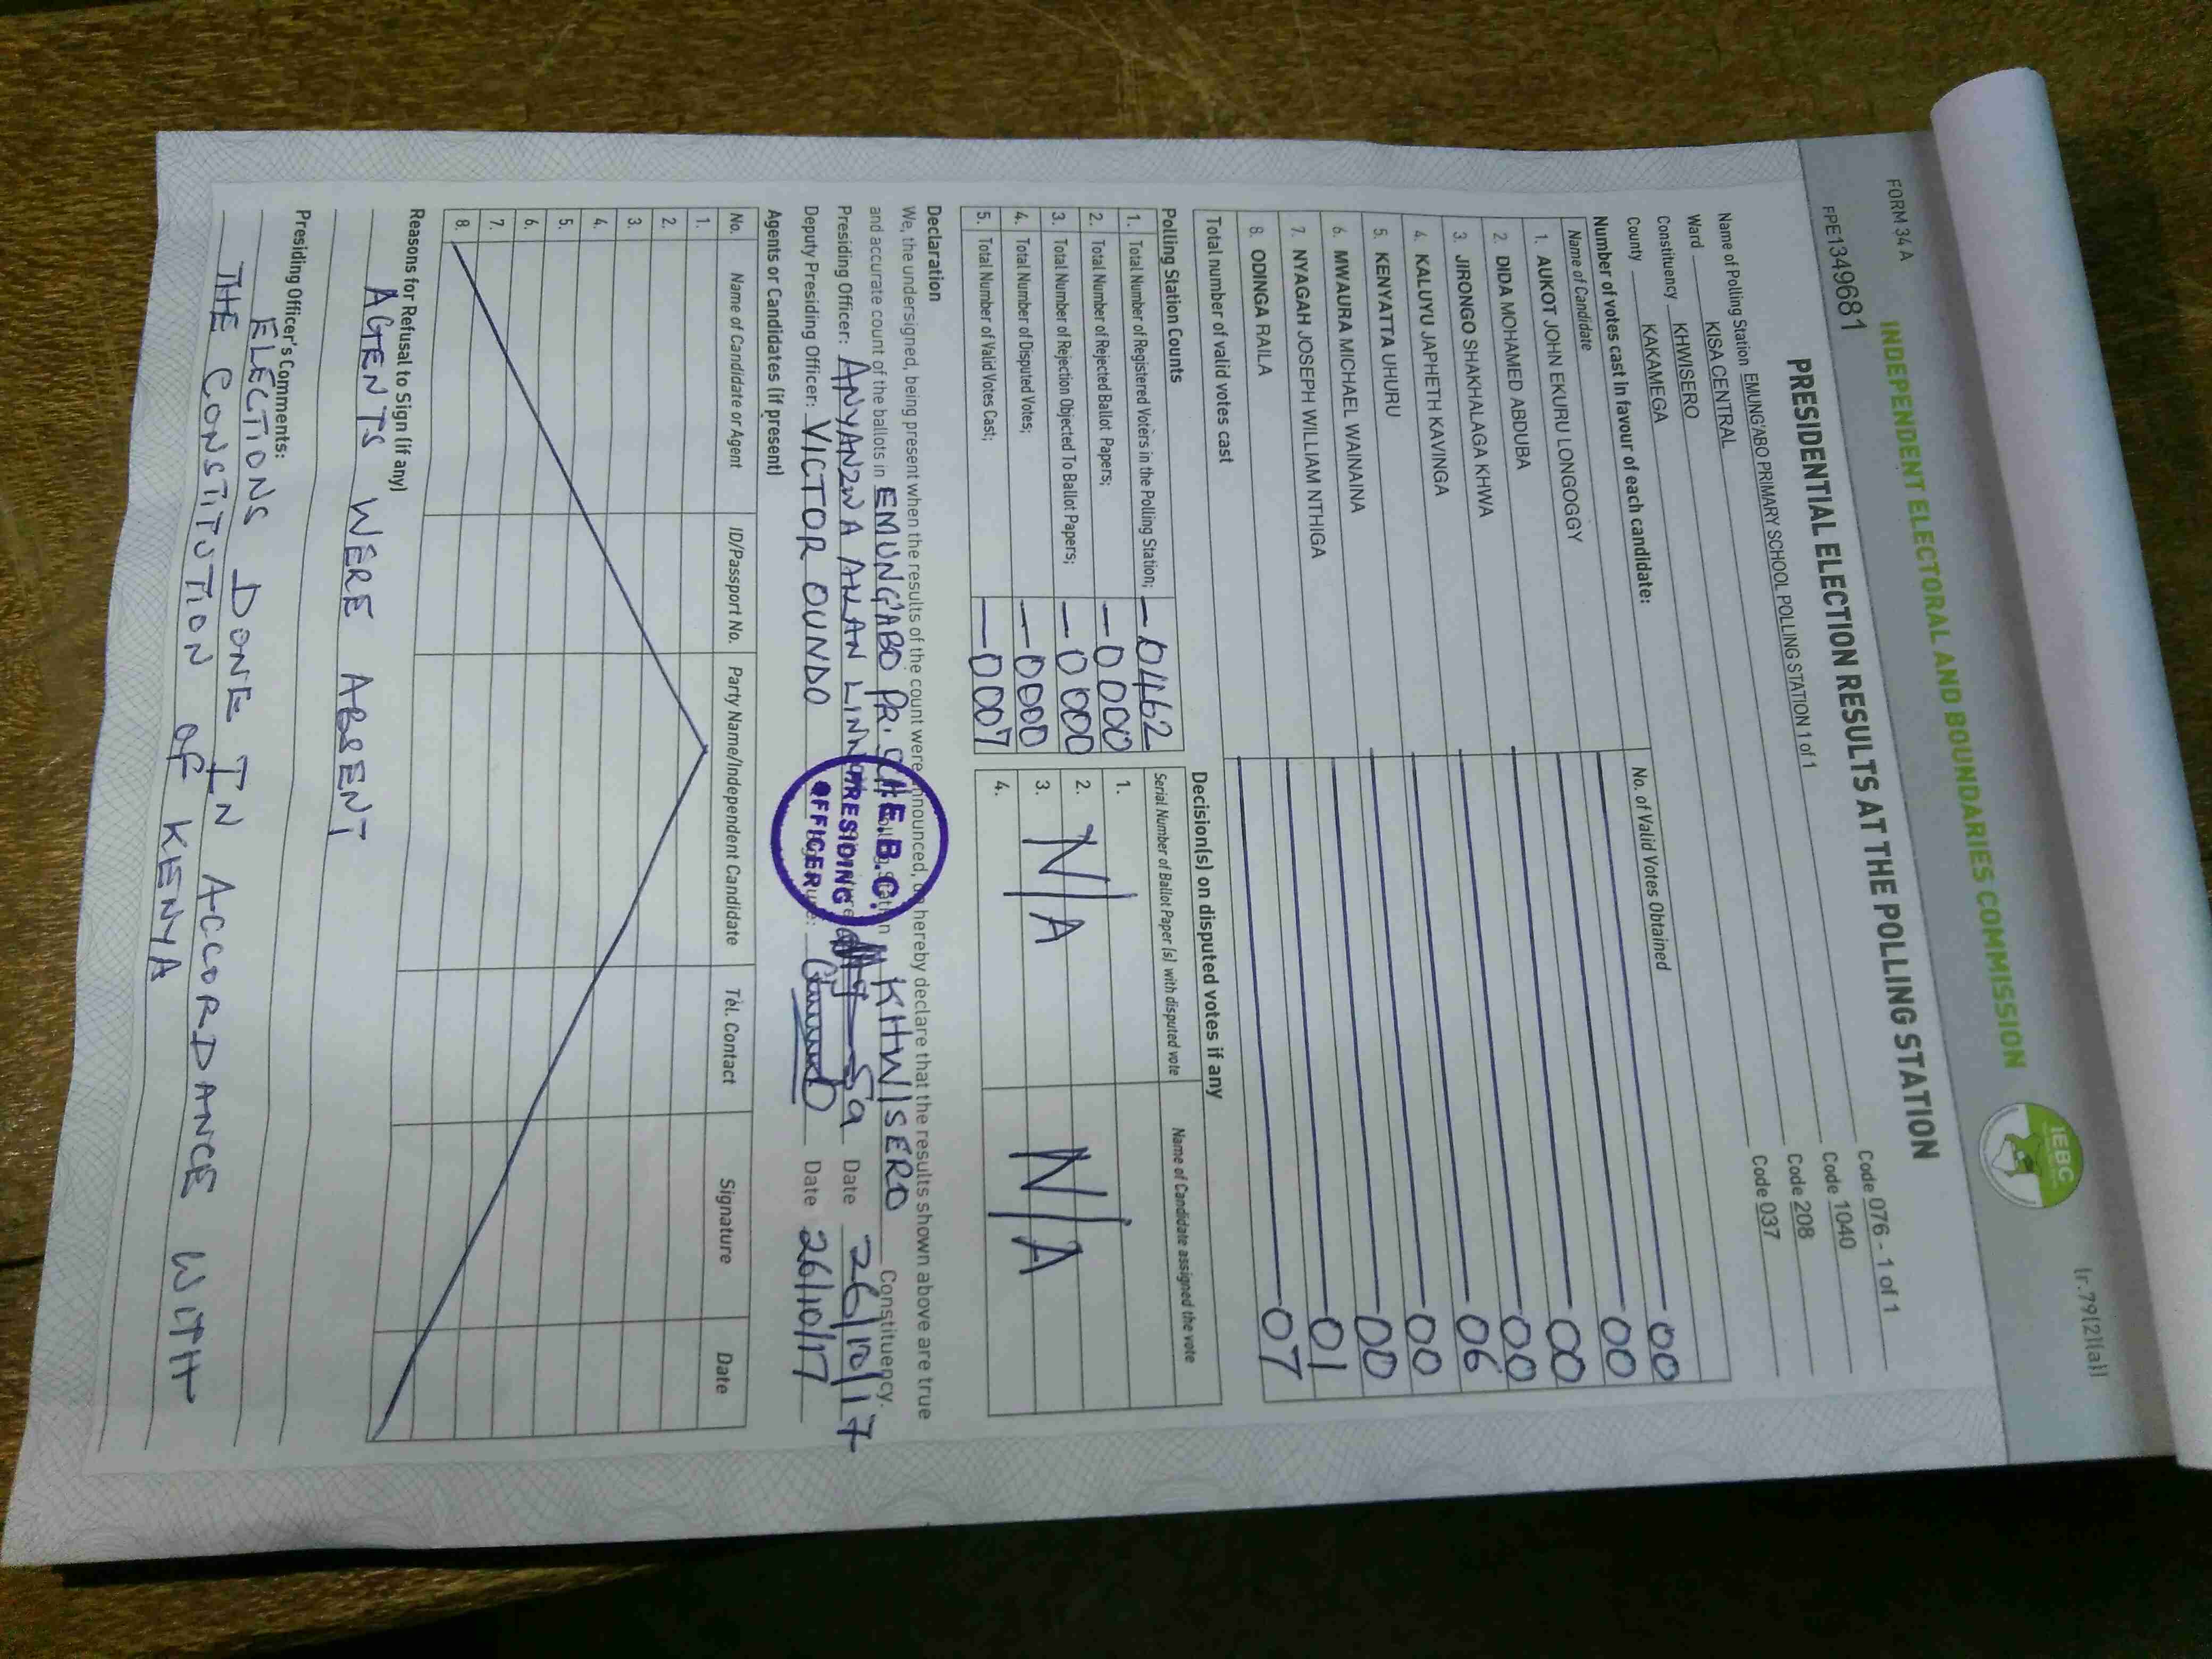 (r.79(2)(a))
FORM 34 A
INDEPENDENT ELECTORAL AND BOUNDARIES COMMISSION
IEBC
FPE1349681
PRESIDENTIAL ELECTION RESULTS AT THE POLLING STATION
Name of Polling Station EMUNG'ABO PRIMARY SCHOOL POLLING STATION 1 of 1 Code 076 - 1 of 1
Ward KISA CENTRAL Code 1040
Constituency KHWISERO Code 208
County KAKAMEGA Code 037
Number of votes cast in favour of each candidate:
Name of Candidate No. of Valid Votes Obtained
1. AUKOT JOHN EKURU LONGOGGY 00
2. DIDA MOHAMED ABDUBA 00
3. JIRONGO SHAKHALAGA KHWA 00
4. KALUYU JAPHETH KAVINGA 00
5. KENYATTA UHURU 06
6. MWAURA MICHAEL WAINAINA 00
7. NYAGAH JOSEPH WILLIAM NTHIGA 00
8. ODINGA RAILA 01
Total number of valid votes cast 07
Polling Station Counts
1. Total Number of Registered Voters in the Polling Station; 0462
2. Total Number of Rejected Ballot Papers; 0000
3. Total Number of Rejection Objected To Ballot Papers; 0000
4. Total Number of Disputed Votes; 0000
5. Total Number of Valid Votes Cast; 0007
Decision(s) on disputed votes if any
Serial Number of Ballot Paper (s) with disputed vote Name of Candidate assigned the vote
1.
2. N/A N/A
3.
4.
Declaration
We, the undersigned, being present when the results of the count were announced, do hereby declare that the results shown above are true
and accurate count of the ballots in EMUNG'ABO PR. KHWISERO Constituency.
Presiding Officer: ANYANZWA ALLAN Date 26/10/17
Deputy Presiding Officer: VICTOR OUNDO Date 26/10/17
I.E.B.C.
PRESIDING
OFFICER
Agents or Candidates (if present)
No. Name of Candidate or Agent ID/Passport No. Party Name/Independent Candidate Tel. Contact Signature Date
1.
2.
3.
4.
5.
6.
7.
8.
Reasons for Refusal to Sign (if any)
AGENTS WERE ABSENT
Presiding Officer's Comments:
ELECTIONS DONE IN ACCORDANCE WITH
THE CONSTITUTION OF KENYA